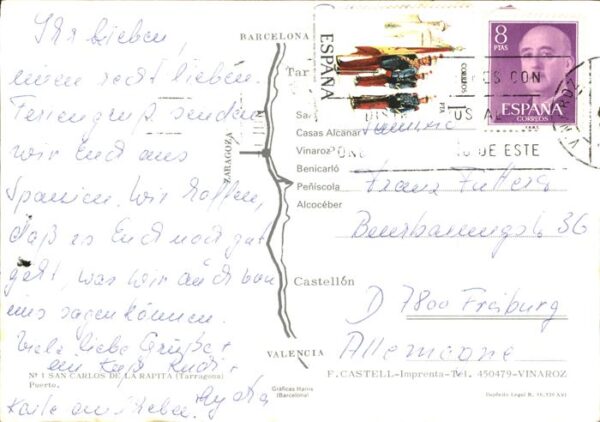 Ihr Lieben,
einen recht lieben
Feriengruß senden
wir Euch aus
Spanien. Wir hoffen,
daß es Euch noch gut
geht, was wir auch von
uns sagen können.
Viele liebe Grüße +
ein Kuß Rudi +
Nº 1 SAN CARLOS DE LA RAPITA (Tarragona)
Puerto.
BARCELONA
Tar
ZARAGOZA
Casas Alcanar
Vinaroz
Benicarló
Peñíscola
Alcocéber
Castellón
VALENCIA
Gráficas Harris
(Barcelona)
ESPAÑA
CORREOS
1 PTA
8
PTAS
ESPAÑA
CORREOS
OS CON
US A
DE ESTE
Familie
Franz
36
D 7800 Freiburg
Allemagne
F. CASTELL-Imprenta-Tel. 450479-VINAROZ